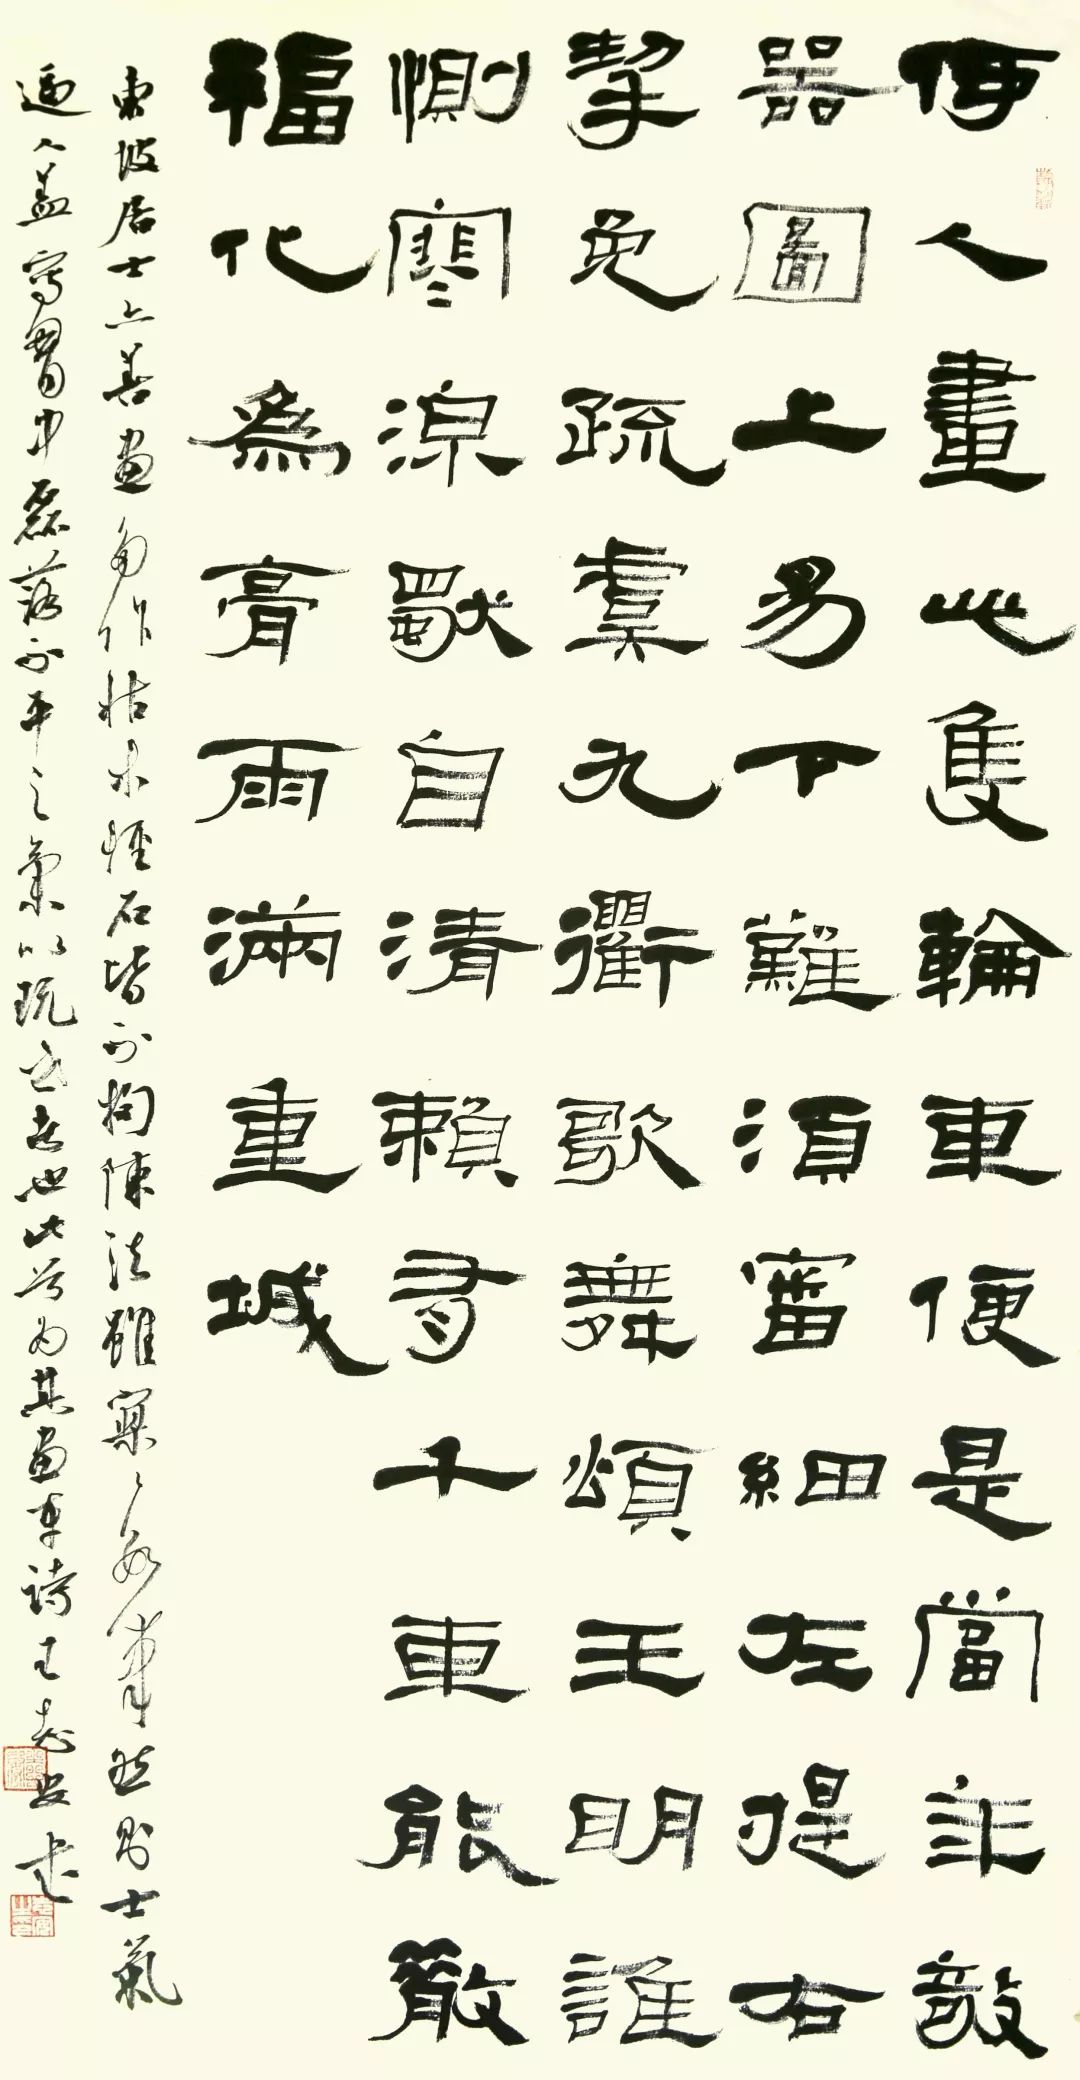 何人畫此隻輪車便是當年敧
器圖上易下難須審細左提右
挈免疏虞九衢歌舞頌王明誰
惻寒泉獨自清賴有千車能散
福化為膏雨滿重城
東坡居士亦善畫多作枯木怪石皆不拘陳法雖寥寥數筆然則士氣
逼人蓋寫胷中磊落不平之氣以玩世者也此首為其畫車詩王志安書